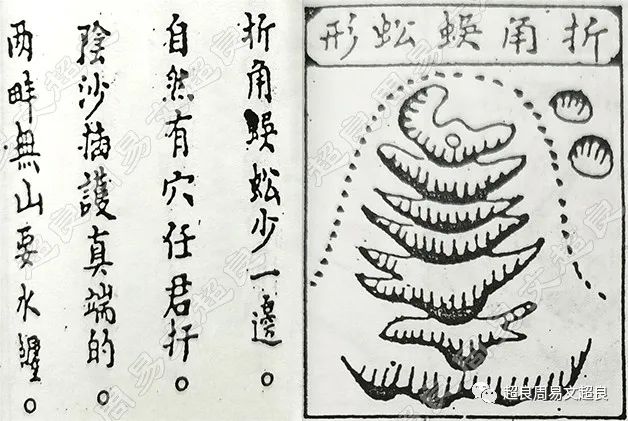 折角蜈蚣形
折角蜈蚣少一邊。
自然有穴任君扦。
陰沙插護真端的。
两畔無山要水纒。
超良周易文超良